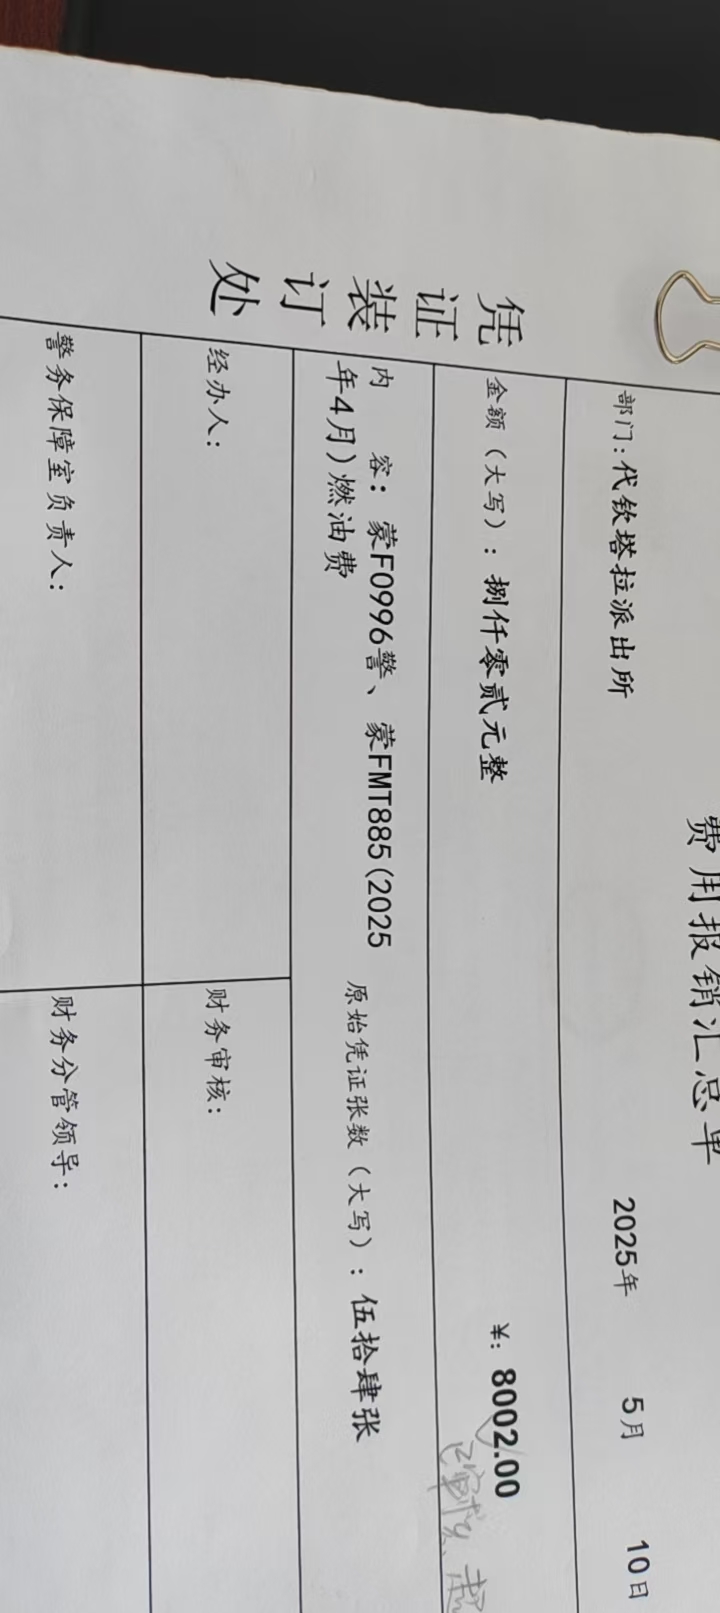 费用报销汇总单
部门:代钦塔拉派出所 2025年 5月 10日
金额（大写）：捌仟零贰元整 ¥：8002.00
内 容：蒙F0996警、蒙FMT885(2025
年4月)燃油费
原始凭证张数（大写）：伍拾肆张
经办人： 财务审核：
警务保障室负责人： 财务分管领导：
凭证装订处